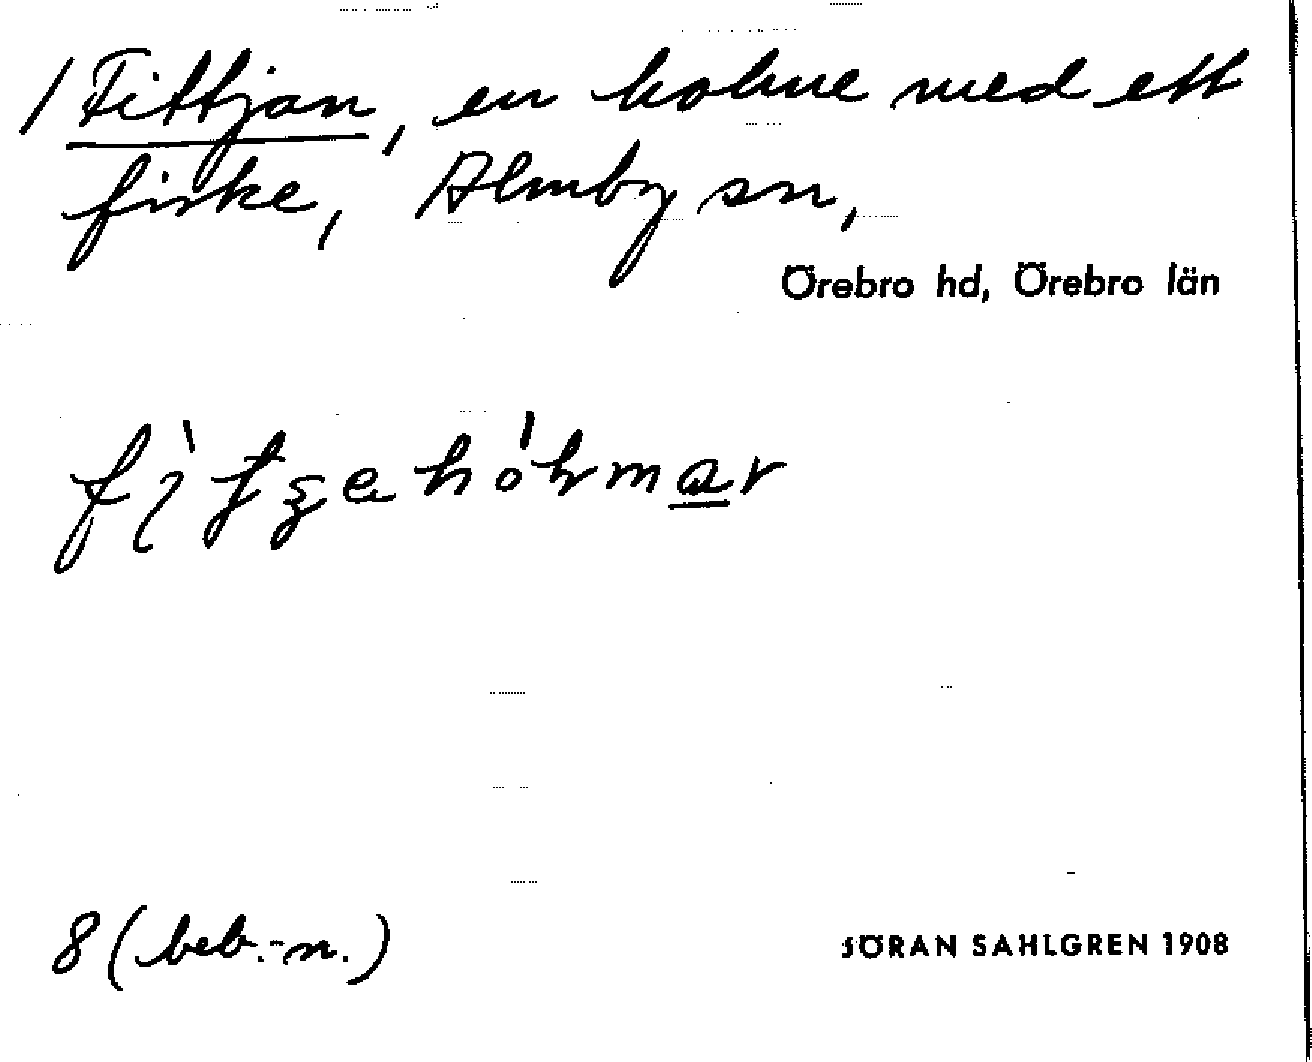 / Fittjan, en holme med ett
fiske, Almby sn,
Örebro hd, Örebro län
8 (beb.-n.)
JÖRAN SAHLGREN 1908